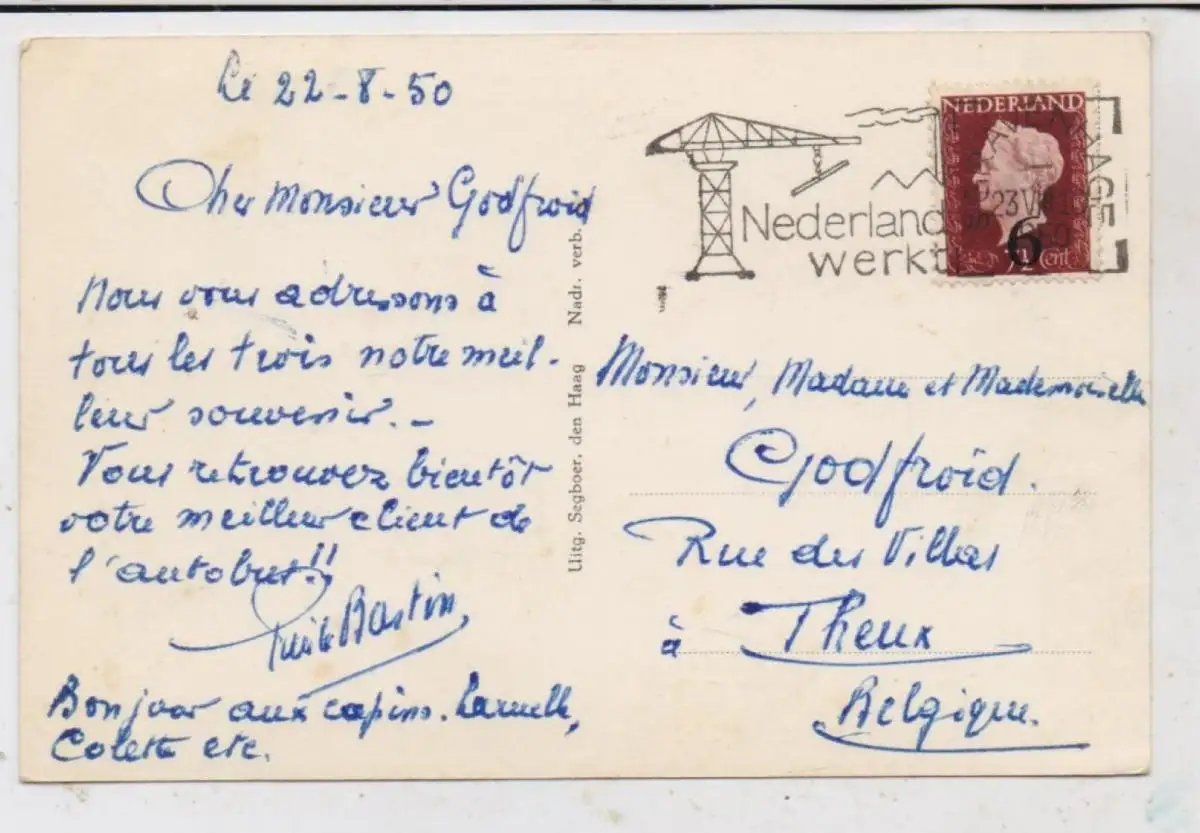 Le 22-8-50
Cher Monsieur Godfroid
Nous vous adressons à
tous les trois notre meil-
leur souvenir.-
Vous retrouvez bientôt
votre meilleur client de
l'autobus!!
Bastin
Bonjour aux copins.
Colette etc.
Uitg. Segboer, den Haag Nadr. verb.
Nederland
werkt
NEDERLAND
'S GRAVENHAGE
23 VIII
1950
6
7½ Cent
Monsieur, Madame et Mademoiselle
Godfroid.
Rue des Villas
à Theux
Belgique.